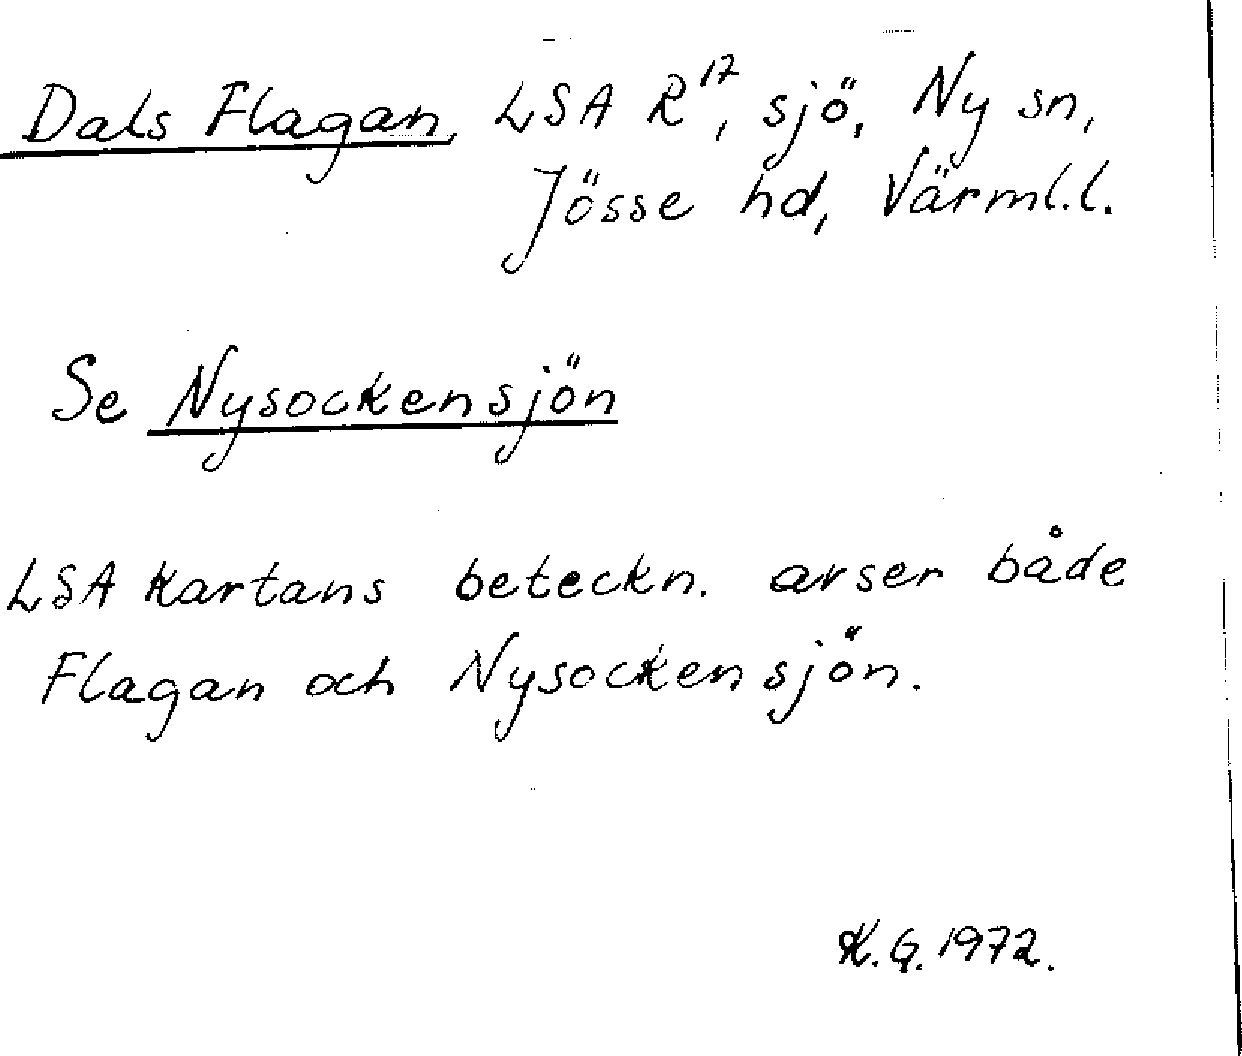 Dals Flagan, LSA R¹⁷, sjö, Ny sn,
Jösse hd, Värml.l.
Se Nysockensjön
LSA kartans beteckn. avser både
Flagan och Nysockensjön.
K.G. 1972.